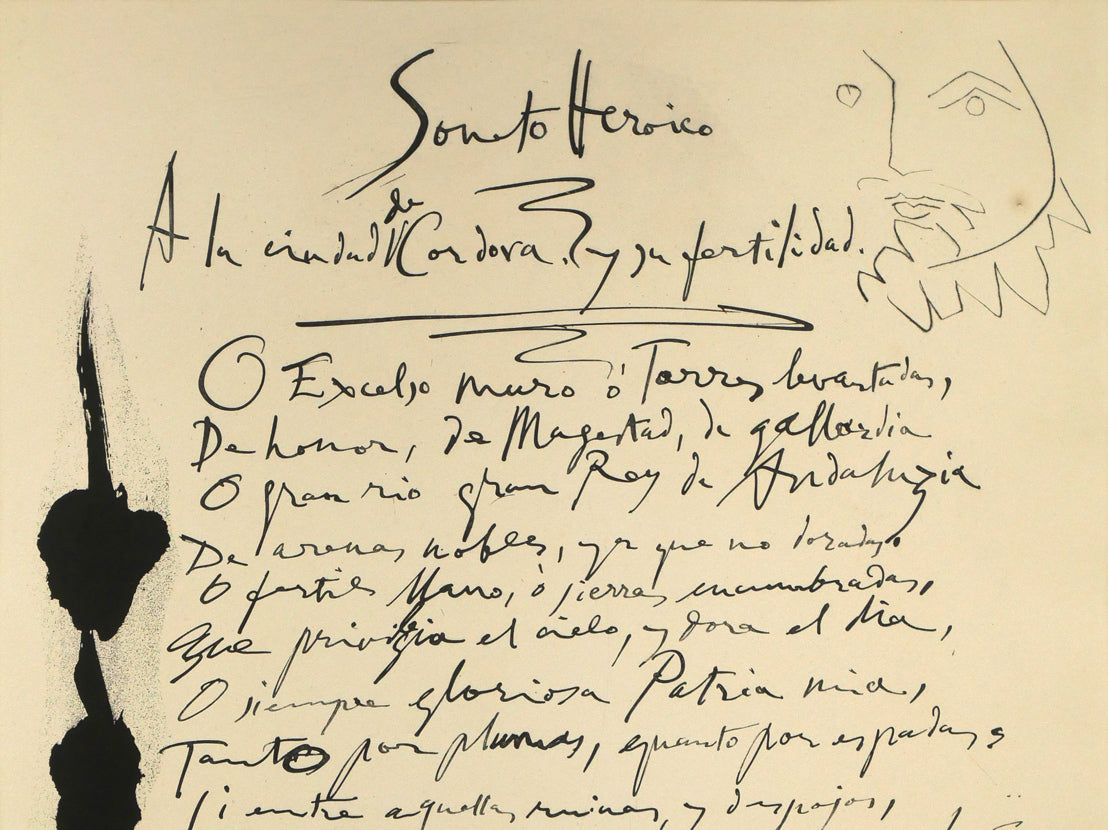 Soneto Heroico
A la ciudad de Cordova. y su fertilidad.
O Excelso muro ó Torres levantadas,
De honor, de Magestad, de gallardia
O gran rio gran Rey de Andaluzia
De arenas nobles, ya que no doradas.
O fertil llano, ó sierras encumbradas,
Que privilegia el cielo, y dora el dia,
O siempre gloriosa Patria mia,
Tanto por plumas, quanto por espadas,
Si entre aquellas ruinas, y despojos,